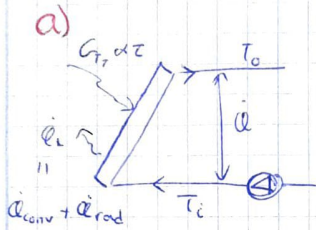 a)
G_T, ατ
T_o
Q̇
Q̇_L
=
Q̇_conv + Q̇_rad
T_i